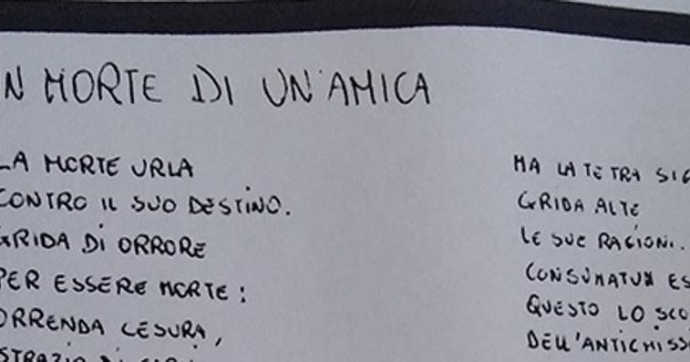 IN MORTE DI UN'AMICA
LA MORTE URLA
CONTRO IL SUO DESTINO.
GRIDA DI ORRORE
PER ESSERE MORTE:
ORRENDA CESURA,
MA LA TETRA
GRIDA ALTE
LE SUE RAGIONI.
CONSUMATUM
QUESTO LO